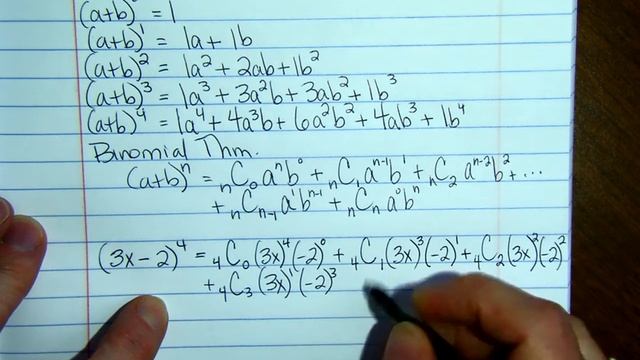 (a+b)⁰ = 1
(a+b)¹ = 1a + 1b
(a+b)² = 1a² + 2ab + 1b²
(a+b)³ = 1a³ + 3a²b + 3ab² + 1b³
(a+b)⁴ = 1a⁴ + 4a³b + 6a²b² + 4ab³ + 1b⁴
Binomial Thm.
(a+b)ⁿ = ₙC₀ aⁿb⁰ + ₙC₁ aⁿ⁻¹b¹ + ₙC₂ aⁿ⁻²b² + ...
+ ₙCₙ₋₁ a¹bⁿ⁻¹ + ₙCₙ a⁰bⁿ
(3x-2)⁴ = ₄C₀(3x)⁴(-2)⁰ + ₄C₁(3x)³(-2)¹ + ₄C₂(3x)²(-2)²
+ ₄C₃(3x)¹(-2)³